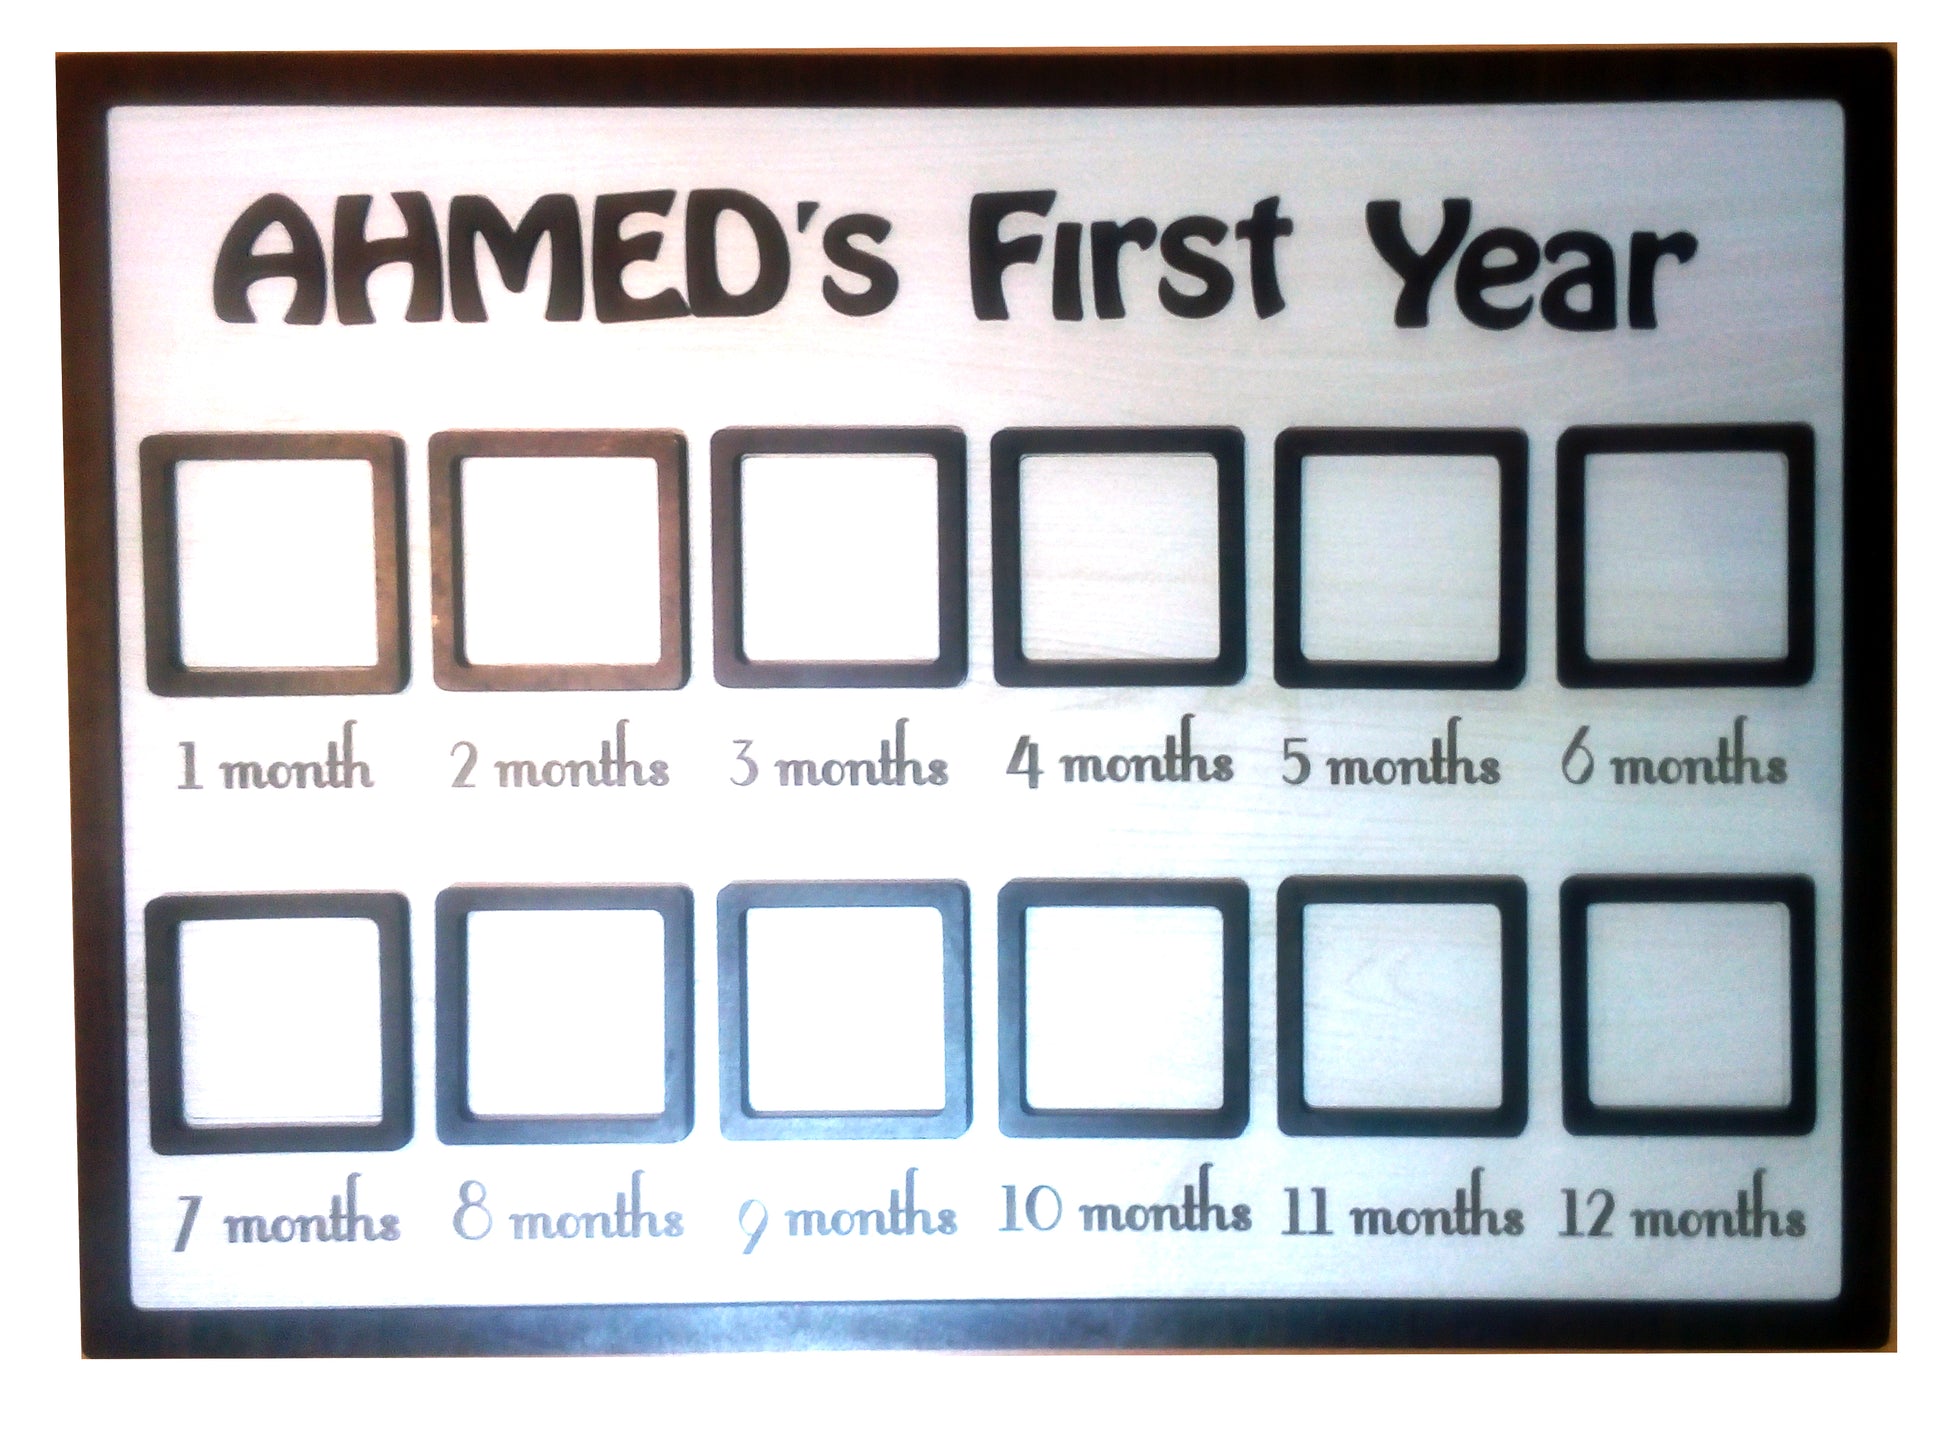 AHMED's First Year
1 month 2 months 3 months 4 months 5 months 6 months
7 months 8 months 9 months 10 months 11 months 12 months